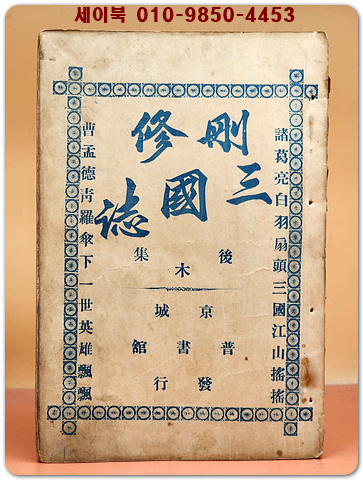 세이북 010-9850-4453
諸葛亮白羽扇頭三國江山搖搖
刪修
三國誌
後木集
京城
普書舘
發行
曹孟德靑羅傘下一世英雄飄飄